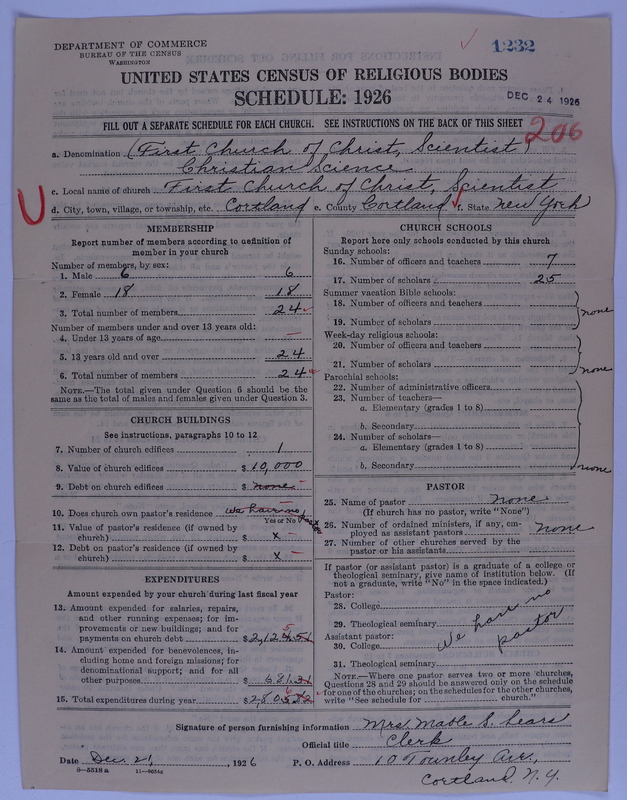 DEPARTMENT OF COMMERCE
BUREAU OF THE CENSUS
WASHINGTON
1232
UNITED STATES CENSUS OF RELIGIOUS BODIES
SCHEDULE: 1926
DEC 24 1926
FILL OUT A SEPARATE SCHEDULE FOR EACH CHURCH. SEE INSTRUCTIONS ON THE BACK OF THIS SHEET
206
a. Denomination (First Church of Christ, Scientist)
Christian Science
c. Local name of church First Church of Christ, Scientist
d. City, town, village, or township, etc. Cortland e. County Cortland f. State New York
MEMBERSHIP
Report number of members according to definition of
member in your church
Number of members, by sex:
1. Male 6 6
2. Female 18 18
3. Total number of members 24
Number of members under and over 13 years old:
4. Under 13 years of age —
5. 13 years old and over 24
6. Total number of members 24
NOTE.—The total given under Question 6 should be the
same as the total of males and females given under Question 3.
CHURCH BUILDINGS
See instructions, paragraphs 10 to 12
7. Number of church edifices 1
8. Value of church edifices $ 10,000
9. Debt on church edifices $ none —
10. Does church own pastor's residence we have no pastor
Yes or No
11. Value of pastor's residence (if owned by
church) $ x —
12. Debt on pastor's residence (if owned by
church) $ x —
EXPENDITURES
Amount expended by your church during last fiscal year
13. Amount expended for salaries, repairs,
and other running expenses; for im-
provements or new buildings; and for
payments on church debt $ 2,124.51
5
14. Amount expended for benevolences, in-
cluding home and foreign missions; for
denominational support; and for all
other purposes $ 681.31
15. Total expenditures during year $ 2805.82
6
CHURCH SCHOOLS
Report here only schools conducted by this church
Sunday schools:
16. Number of officers and teachers 7
17. Number of scholars 25
Summer vacation Bible schools:
18. Number of officers and teachers
none
19. Number of scholars
Week-day religious schools:
20. Number of officers and teachers
21. Number of scholars
none
Parochial schools:
22. Number of administrative officers
23. Number of teachers—
a. Elementary (grades 1 to 8)
b. Secondary
24. Number of scholars—
a. Elementary (grades 1 to 8)
b. Secondary
none
PASTOR
25. Name of pastor none
(If church has no pastor, write "None")
26. Number of ordained ministers, if any, em-
ployed as assistant pastors none
27. Number of other churches served by the
pastor or his assistants
If pastor (or assistant pastor) is a graduate of a college or
theological seminary, give name of institution below. (If
not a graduate, write "No" in the space indicated.)
Pastor:
28. College
29. Theological seminary
we have no
pastor
Assistant pastor:
30. College
31. Theological seminary
NOTE.—Where one pastor serves two or more churches,
Questions 28 and 29 should be answered only on the schedule
for one of the churches; on the schedules for the other churches,
write "See schedule for church."
Signature of person furnishing information Mrs. Mable S. Sears
Official title Clerk
Date Dec. 21, 1926 P. O. Address 10 Townley Ave.,
Cortland, N. Y.
8—5518 a 11—9034a